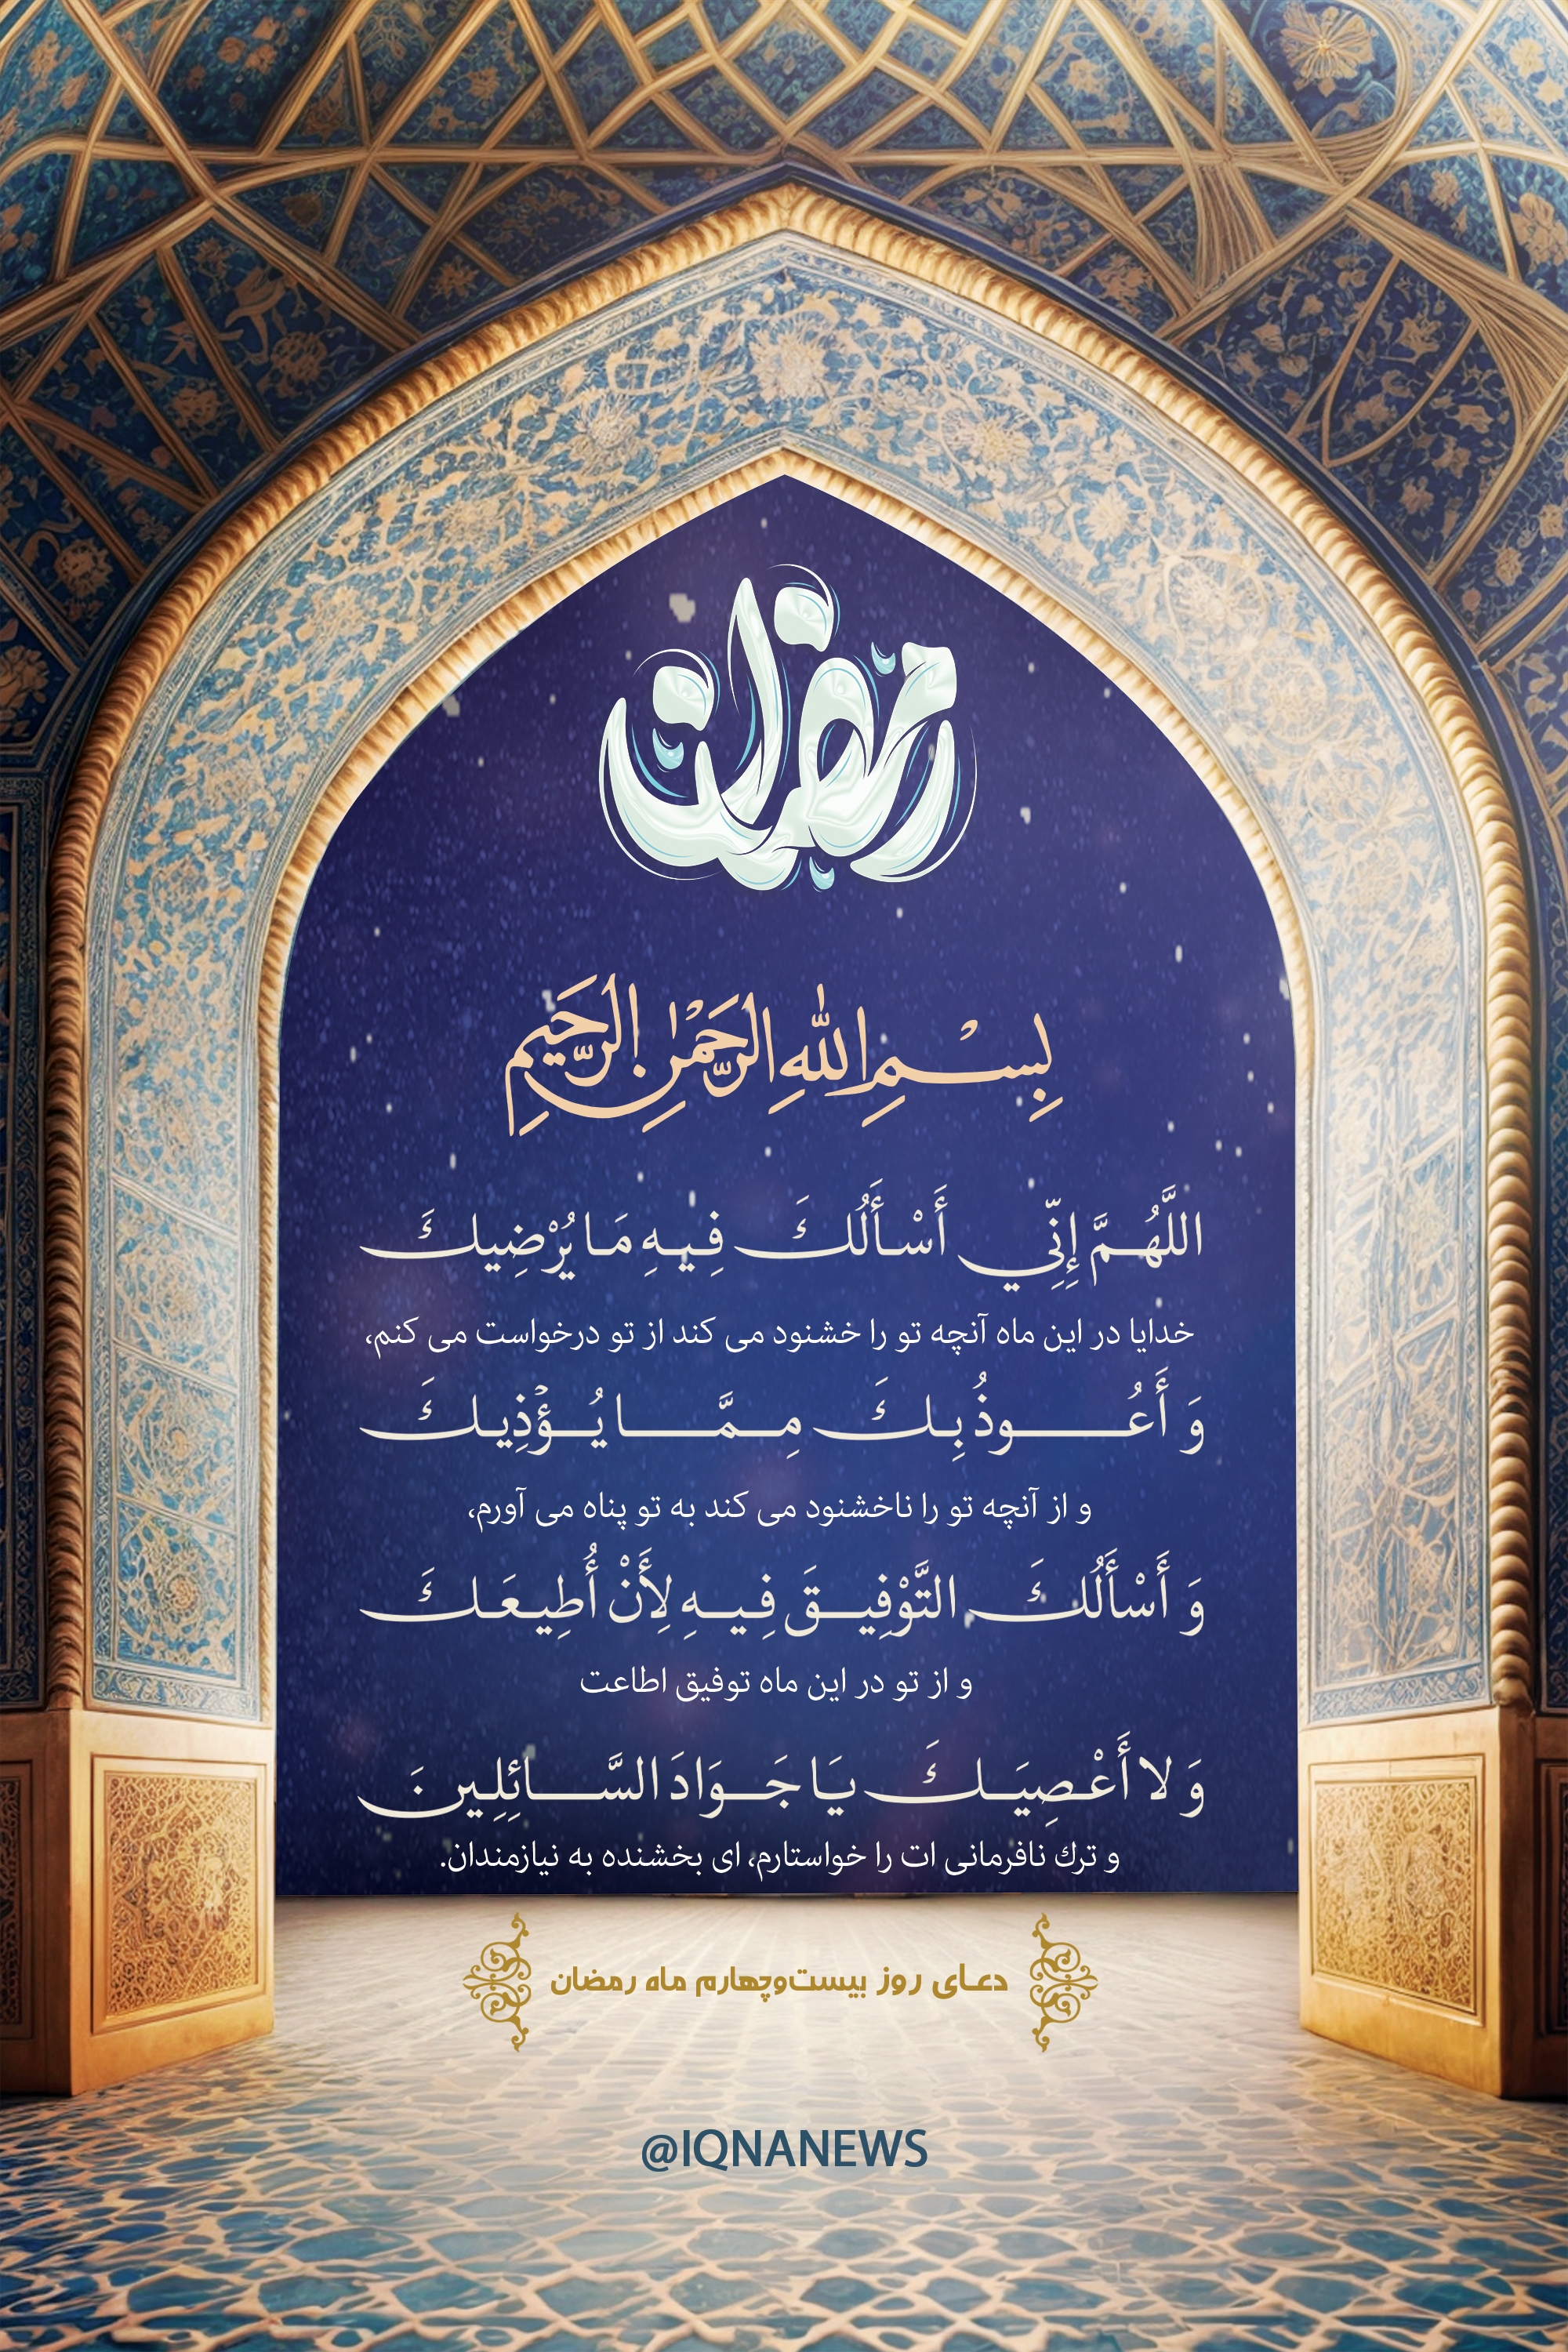 رمضان
بِسْمِ اللهِ الرَّحْمٰنِ الرَّحِيمِ
اللَّهُمَّ إِنِّي أَسْأَلُكَ فِيهِ مَا يُرْضِيكَ
خدایا در این ماه آنچه تو را خشنود می کند از تو درخواست می کنم،
وَ أَعُوذُ بِكَ مِمَّا يُؤْذِيكَ
و از آنچه تو را ناخشنود می کند به تو پناه می آورم،
وَ أَسْأَلُكَ التَّوْفِيقَ فِيهِ لِأَنْ أُطِيعَكَ
و از تو در این ماه توفیق اطاعت
وَ لا أَعْصِيَكَ يَا جَوَادَ السَّائِلِينَ
و ترك نافرمانی ات را خواستارم، ای بخشنده به نیازمندان.
دعای روز بیست‌وچهارم ماه رمضان
@IQNANEWS